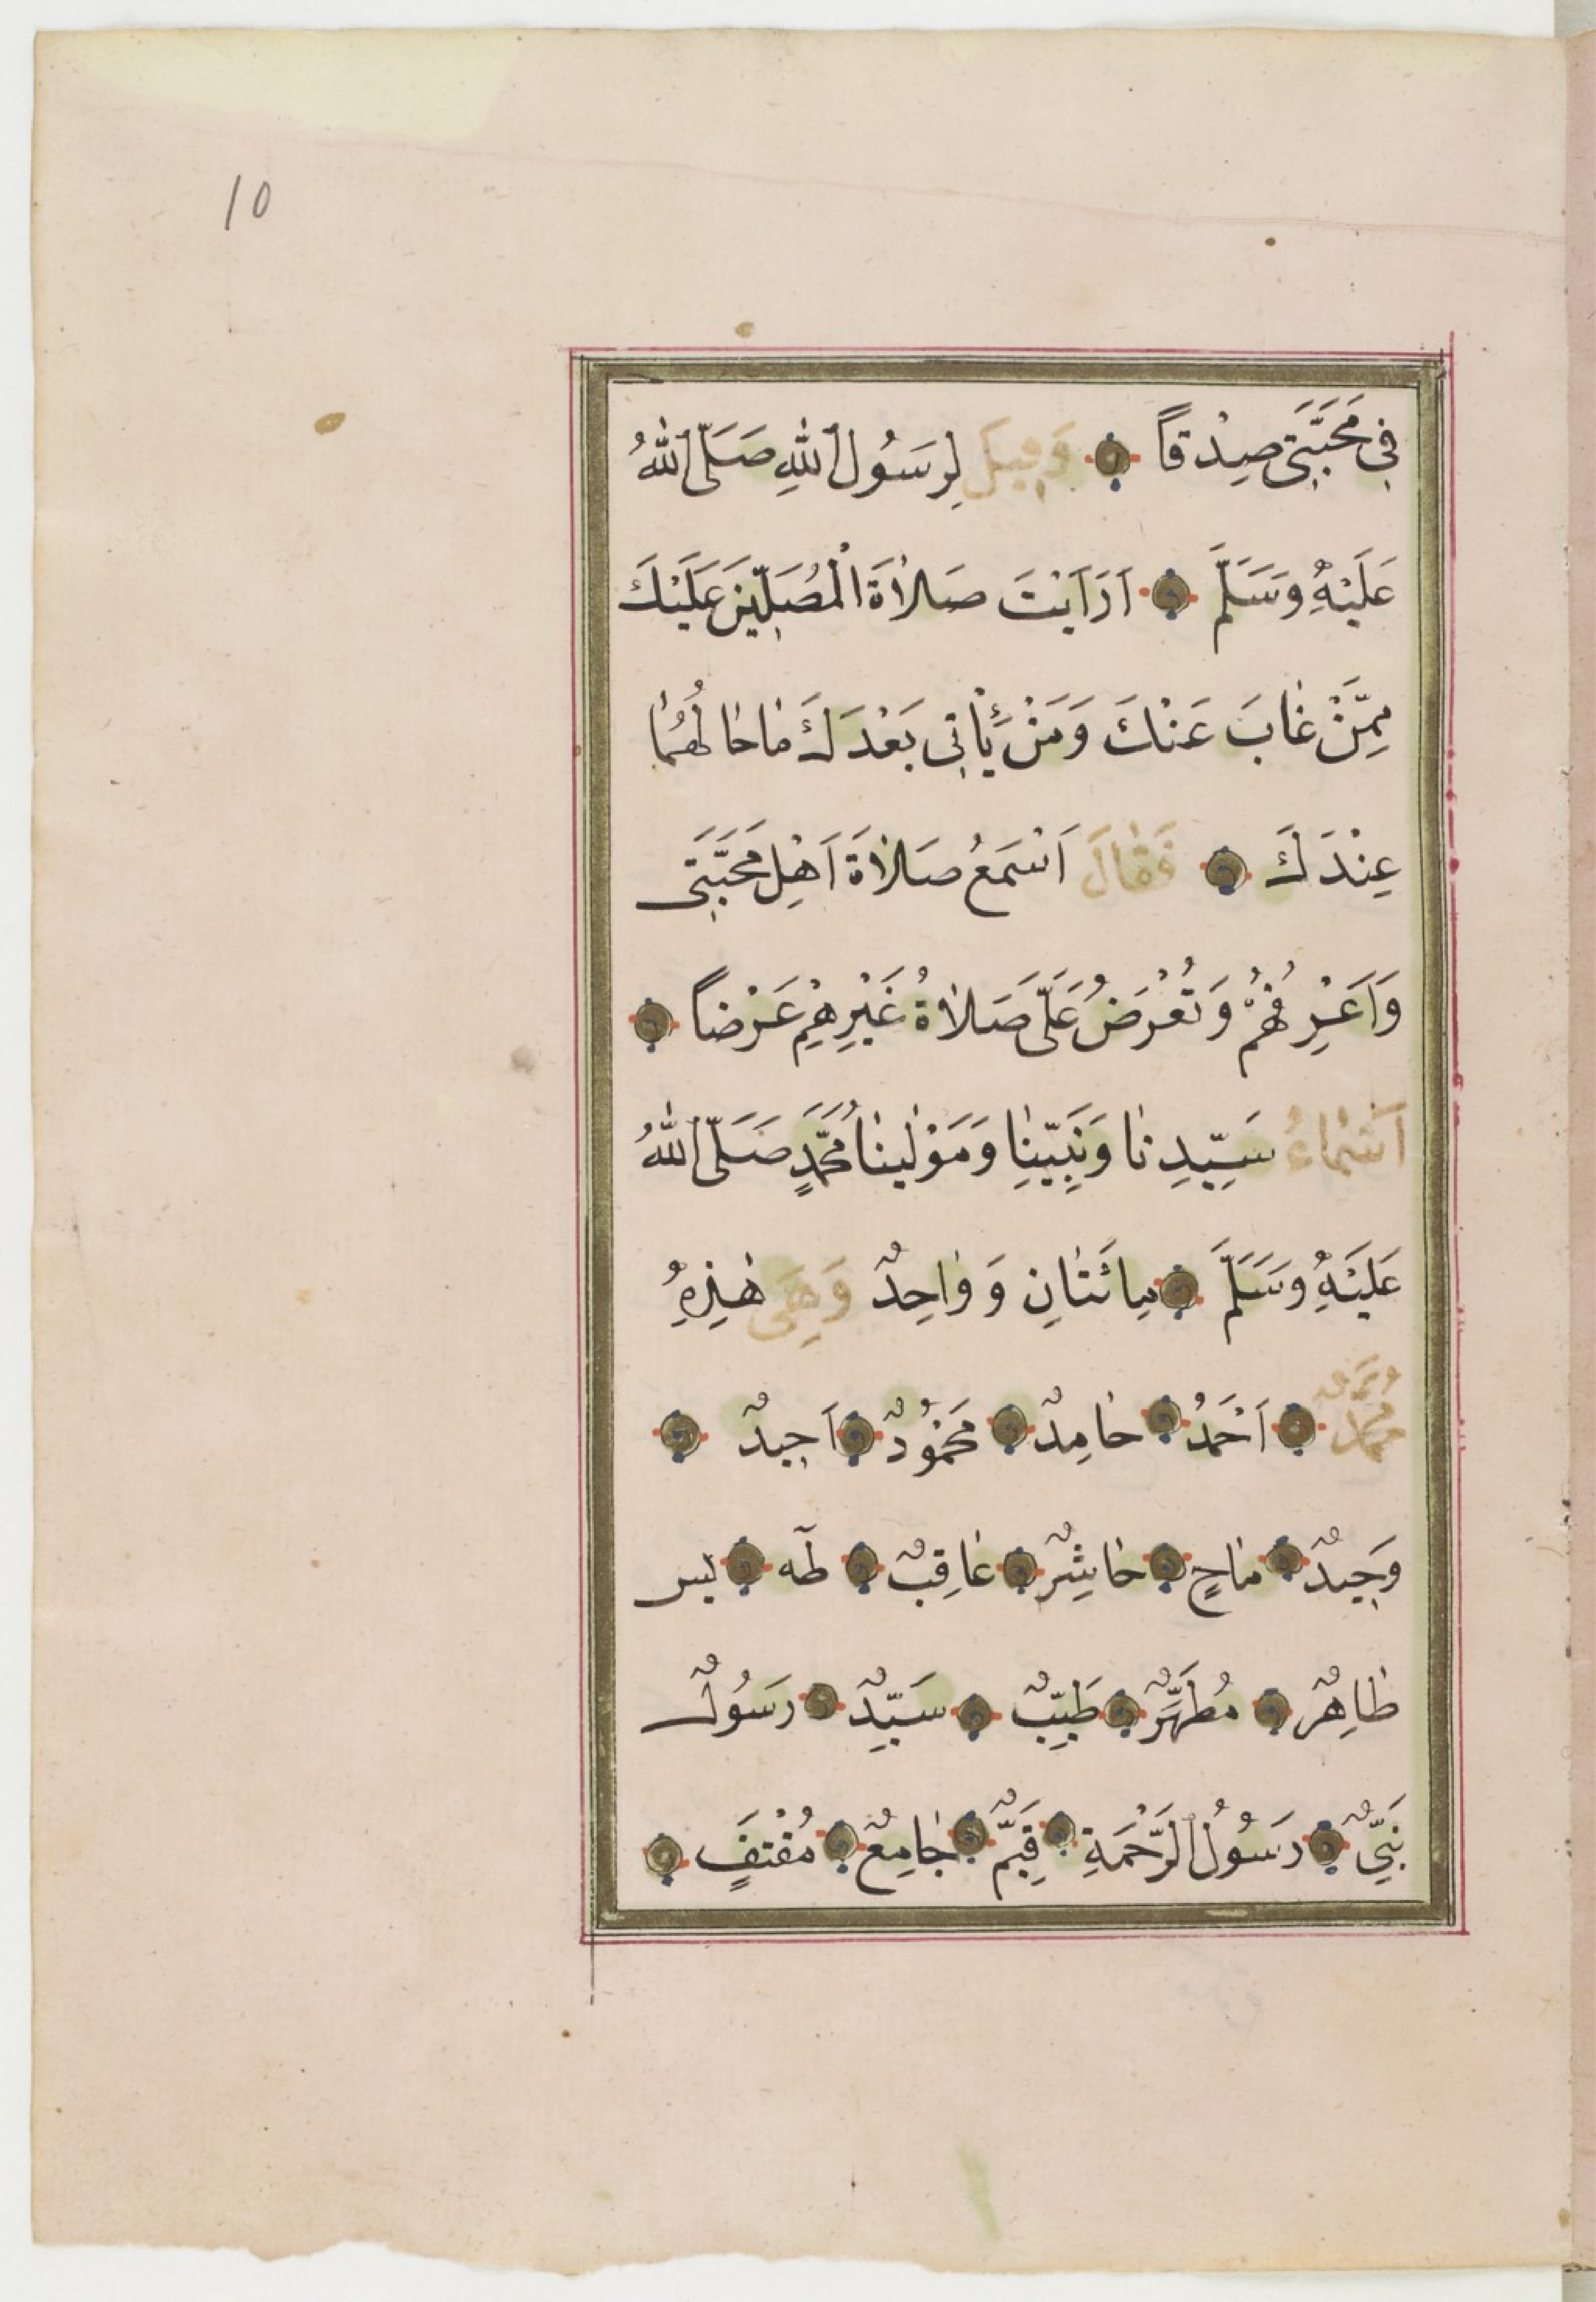 10
فِي مَحَبَّتِي صِدْقاً وَقِيلَ لِرَسُولِ اللهِ صَلَّى اللهُ
عَلَيْهِ وَسَلَّمَ اَرَاَيْتَ صَلَاةَ الْمُصَلِّينَ عَلَيْكَ
مِمَّنْ غَابَ عَنْكَ وَمَنْ يَأْتِي بَعْدَكَ مَا حَالُهُمَا
عِنْدَكَ فَقَالَ اَسْمَعُ صَلَاةَ اَهْلِ مَحَبَّتِي
وَاَعْرِفُهُمْ وَتُعْرَضُ عَلَىَّ صَلَاةُ غَيْرِهِمْ عَرْضاً
اَسْمَاءُ سَيِّدِنَا وَنَبِيِّنَا وَمَوْلٰينَا مُحَمَّدٍ صَلَّى اللهُ
عَلَيْهِ وَسَلَّمَ مِائَتَانِ وَوَاحِدٌ وَهِيَ هٰذِهِ
مُحَمَّدٌ اَحْمَدُ حَامِدٌ مَحْمُودٌ اَحِيدٌ
وَحِيدٌ مَاحٍ حَاشِرٌ عَاقِبٌ طٰه يٰس
طَاهِرٌ مُطَهَّرٌ طَيِّبٌ سَيِّدٌ رَسُولٌ
نَبِيٌّ رَسُولُ الرَّحْمَةِ قَيِّمٌ جَامِعٌ مُقْتَفٍ